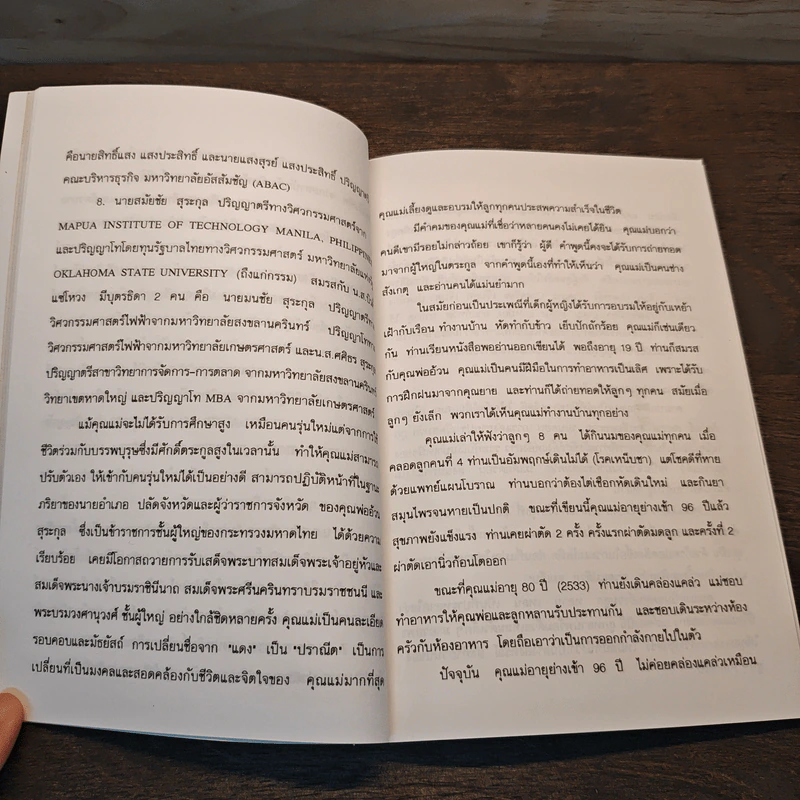 คือนายสิทธิ์แสง แสงประสิทธิ์ และนายแสงสุรย์ แสงประสิทธิ์ ปริญญาตรี
คณะบริหารธุรกิจ มหาวิทยาลัยอัสสัมชัญ (ABAC)
8. นายสมัยชัย สุระกุล ปริญญาตรีทางวิศวกรรมศาสตร์จาก
MAPUA INSTITUTE OF TECHNOLOGY MANILA, PHILIPPINE
และปริญญาโทโดยทุนรัฐบาลไทยทางวิศวกรรมศาสตร์ มหาวิทยาลัยแห่งรัฐ
OKLAHOMA STATE UNIVERSITY (ถึงแก่กรรม) สมรสกับ น.ส.
แซ่โหวง มีบุตรธิดา 2 คน คือ นายมนชัย สุระกุล ปริญญาตรีทาง
วิศวกรรมศาสตร์ไฟฟ้าจากมหาวิทยาลัยสงขลานครินทร์ ปริญญาโททาง
วิศวกรรมศาสตร์ไฟฟ้าจากมหาวิทยาลัยเกษตรศาสตร์ และน.ส.ศศิธร สุระกุล
ปริญญาตรีสาขาวิทยาการจัดการ-การตลาด จากมหาวิทยาลัยสงขลานครินทร์
วิทยาเขตหาดใหญ่ และปริญญาโท MBA จากมหาวิทยาลัยเกษตรศาสตร์
แม้คุณแม่จะไม่ได้รับการศึกษาสูง เหมือนคนรุ่นใหม่แต่จากการใช้
ชีวิตร่วมกับบรรพบุรุษซึ่งมีศักดิ์ตระกูลสูงในเวลานั้น ทำให้คุณแม่สามารถ
ปรับตัวเอง ให้เข้ากับคนรุ่นใหม่ได้เป็นอย่างดี สามารถปฏิบัติหน้าที่ในฐานะ
ภริยาของนายอำเภอ ปลัดจังหวัดและผู้ว่าราชการจังหวัด ของคุณพ่ออ้วน
สุระกุล ซึ่งเป็นข้าราชการชั้นผู้ใหญ่ของกระทรวงมหาดไทย ได้ด้วยความ
เรียบร้อย เคยมีโอกาสถวายการรับเสด็จพระบาทสมเด็จพระเจ้าอยู่หัวและ
สมเด็จพระนางเจ้าบรมราชินีนาถ สมเด็จพระศรีนครินทราบรมราชชนนี และ
พระบรมวงศานุวงศ์ ชั้นผู้ใหญ่ อย่างใกล้ชิดหลายครั้ง คุณแม่เป็นคนละเอียด
รอบคอบและมัธยัสถ์ การเปลี่ยนชื่อจาก "แดง" เป็น "ปราณีต" เป็นการ
เปลี่ยนที่เป็นมงคลและสอดคล้องกับชีวิตและจิตใจของ คุณแม่มากที่สุด
คุณแม่เลี้ยงดูและอบรมให้ลูกทุกคนประสพความสำเร็จในชีวิต
มีคำคมของคุณแม่ที่เชื่อว่าหลายคนคงไม่เคยได้ยิน คุณแม่บอกว่า
คนดีเขามีรอยไม่กล่าวถ้อย เขาก็รู้ว่า ผู้ดี คำพูดนี้คงจะได้รับการถ่ายทอด
มาจากผู้ใหญ่ในตระกูล จากคำพูดนี้เองที่ทำให้เห็นว่า คุณแม่เป็นคนช่าง
สังเกตุ และอ่านคนได้แม่นยำมาก
ในสมัยก่อนเป็นประเพณีที่เด็กผู้หญิงได้รับการอบรมให้อยู่กับเหย้า
เฝ้ากับเรือน ทำงานบ้าน หัดทำกับข้าว เย็บปักถักร้อย คุณแม่ก็เช่นเดียว
กัน ท่านเรียนหนังสือพออ่านออกเขียนได้ พอถึงอายุ 19 ปี ท่านก็สมรส
กับคุณพ่ออ้วน คุณแม่เป็นคนมีฝีมือในการทำอาหารเป็นเลิศ เพราะได้รับ
การฝึกฝนมาจากคุณยาย และท่านก็ได้ถ่ายทอดให้ลูกๆ ทุกคน สมัยเมื่อ
ลูกๆ ยังเล็ก พวกเราได้เห็นคุณแม่ทำงานบ้านทุกอย่าง
คุณแม่เล่าให้ฟังว่าลูกๆ 8 คน ได้กินนมของคุณแม่ทุกคน เมื่อ
คลอดลูกคนที่ 4 ท่านเป็นอัมพฤกษ์เดินไม่ได้ (โรคเหน็บชา) แต่โชคดีที่หาย
ด้วยแพทย์แผนโบราณ ท่านบอกว่าต้องไต่เชือกหัดเดินใหม่ และกินยา
สมุนไพรจนหายเป็นปกติ ขณะที่เขียนนี้คุณแม่อายุย่างเข้า 96 ปีแล้ว
สุขภาพยังแข็งแรง ท่านเคยผ่าตัด 2 ครั้ง ครั้งแรกผ่าตัดมดลูก และครั้งที่ 2
ผ่าตัดเอานิ่วก้อนโตออก
ขณะที่คุณแม่อายุ 80 ปี (2533) ท่านยังเดินคล่องแคล่ว แม่ชอบ
ทำอาหารให้คุณพ่อและลูกหลานรับประทานกัน และชอบเดินระหว่างห้อง
ครัวกับห้องอาหาร โดยถือเอาว่าเป็นการออกกำลังกายไปในตัว
ปัจจุบัน คุณแม่อายุย่างเข้า 96 ปี ไม่ค่อยคล่องแคล่วเหมือน